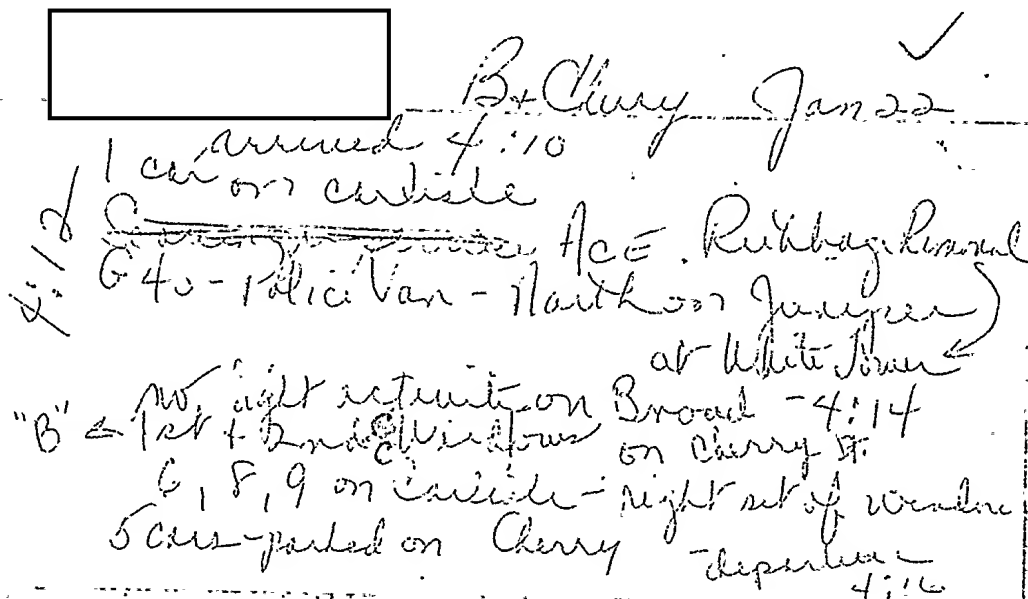 B + Cherry Jan 22
arrived 4:10
1 car on carlisle
4:12
ACE. Rubbage Removal
640 - Police Van - North on Juniper
at White Tower
no light activity on Broad - 4:14
"B" 1st + 2nd Windows on Cherry St.
6, 8, 9 on Carlisle - right set of window
5 cars - parked on Cherry
- departure
4:16